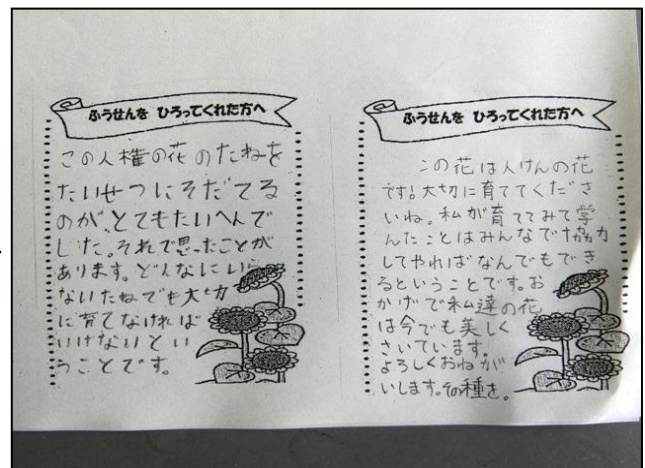 ふうせんを ひろってくれた方へ
この人権の花のたねを
たいせつにそだてる
のが、とてもたいへんで
した。それで思ったことが
あります。どんなにいら
ないたねでも大切
に育てなければ
いけないとい
うことです。
ふうせんを ひろってくれた方へ
この花は人けんの花
です!大切に育ててくださ
いね。私が育ててみて学
んだことはみんなで協力
してやればなんでもでき
るということです。お
かげで私達の花
は今でも美しく
さいています。
よろしくおねが
いします。その種を。